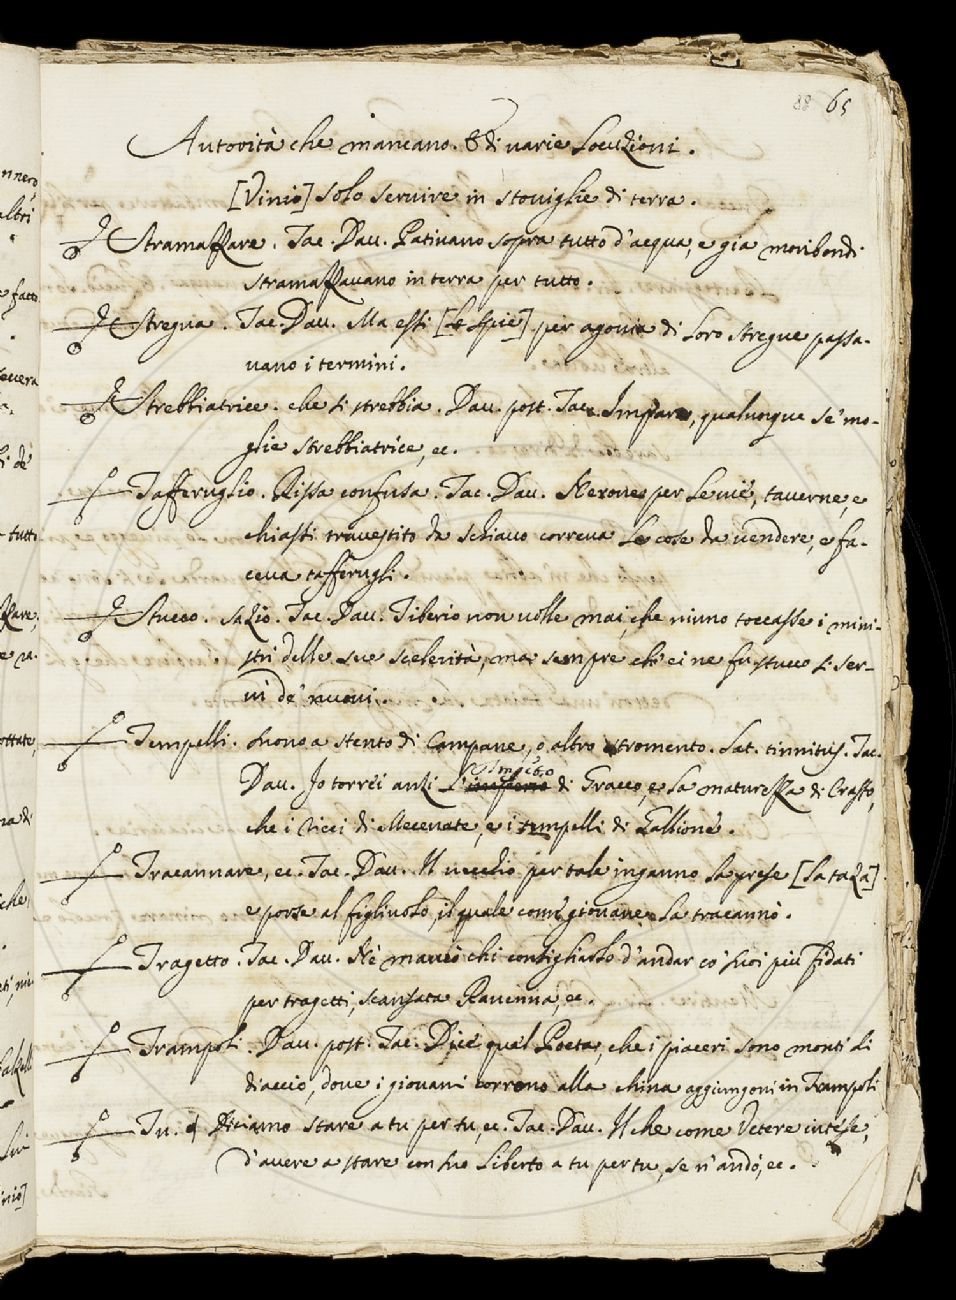 88 65
Autorità che mancano. E di varie Locuzioni.
[Vinio] solo servire in stoviglie di terra.
Stramazzare. Tac. Dav. Pativano sopra tutto d'acqua, e già moribondi
stramazzavano in terra per tutto.
Stregua. Tac. Dav. Ma essi [le spie] per agonia di loro stregue passa-
vano i termini.
Strebbiatrice. che si strebbia. Dav. post. Tac. Impara, qualunque se' mo-
glie strebbiatrice, ec.
Tafferuglio. Rissa confusa. Tac. Dav. Nerone per le vie, taverne, e
chiassi travestito da schiavo correva le cose da vendere, e fa-
ceva tafferugli.
Stucco. sazio. Tac. Dav. Tiberio non volle mai, che niuno toccasse i mini-
stri delle sue scelerità, ma sempre ch' ei ne fu stucco si ser-
vì de' nuovi.
Tempelli. suono a stento di Campane, o altro stromento. Lat. tinnitus. Tac.
Dav. Io torrei anzi l' impeto di Gracco, e la maturezza di Crasso,
che i ricci di Mecenate, e i tempelli di Gallione.
Tracannare, ec. Tac. Dav. Il vecchio per tale inganno la prese [la tazza]
e porse al figliuolo, il quale com' giovane la tracannò.
Tragetto. Tac. Dav. Nè mancò chi consigliasselo d'andar co' suoi più fidati
per tragetti, scansata Ravenna, ec.
Trampoli. Dav. post. Tac. Dice quel Poeta, che i piaceri sono monti di
diaccio, dove i giovani corrono alla china aggiungoni in Trampoli
Tu. Diciamo stare a tu per tu, ec. Tac. Dav. Il che come Vetere intese,
d'avere a stare con suo liberto a tu per tu, se n'andò, ec.